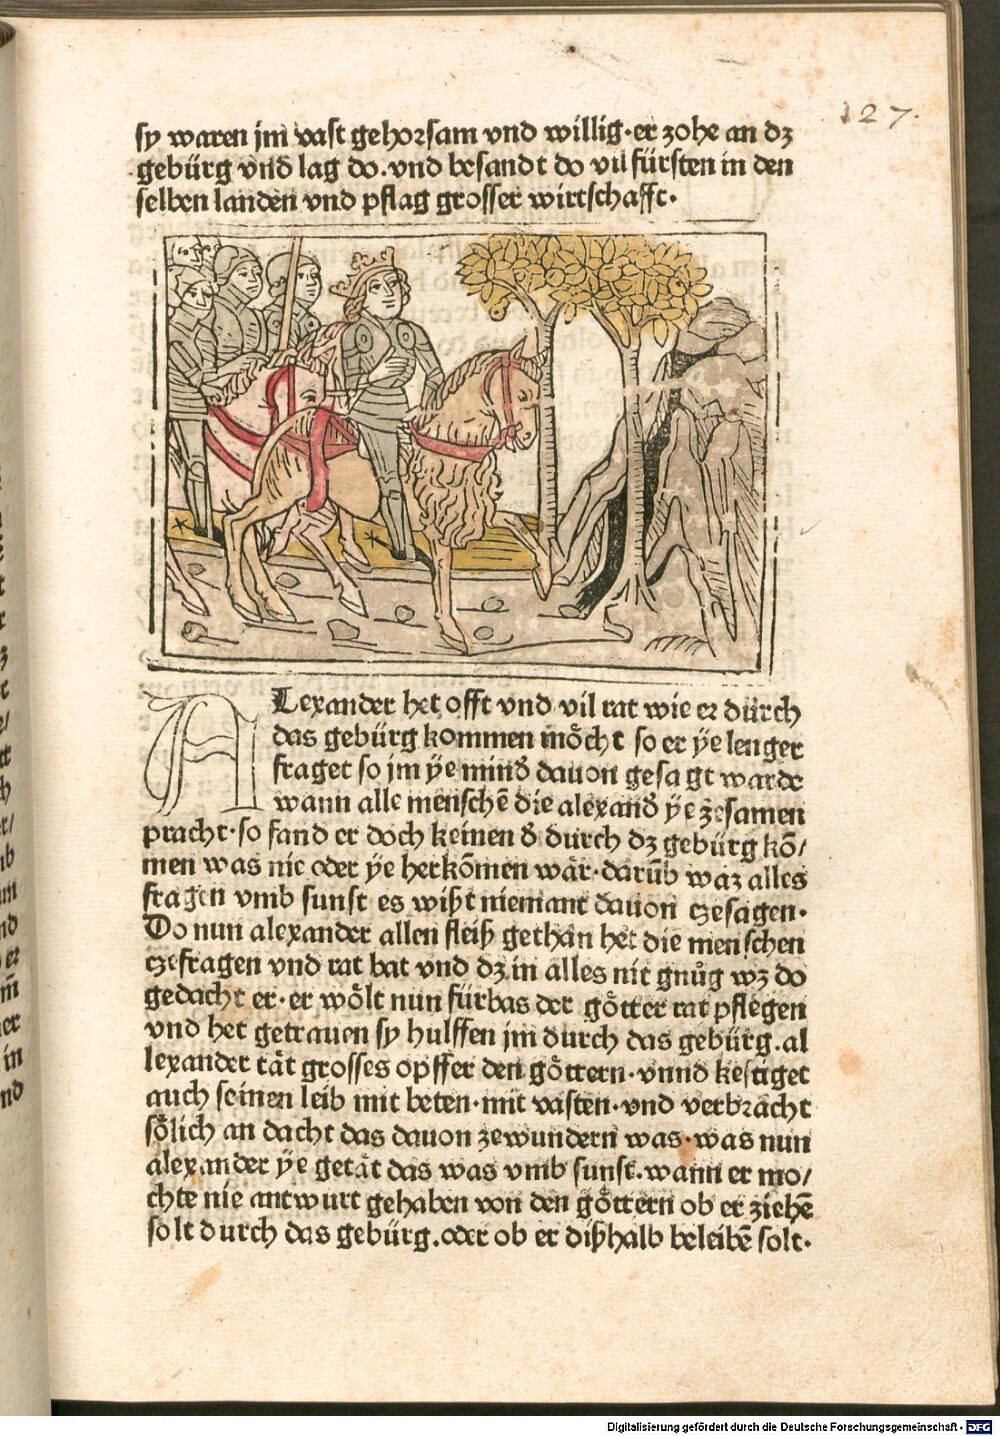 127.
sy waren jm vast gehorsam vnd willig·er zohe an dz
gebürg vnd lag do.vnd besandt do vil fürsten in den
selben landen vnd pflag grosser wirtschafft·
ALexander het offt vnd vil rat wie er durch
das gebürg kommen möcht so er ÿe lenger
fraget so jm ÿe mind̄ dauon gesagt warde
wann alle menschē die alexand̄ ÿe zesamen
pracht·so fand er doch keinen d̄ durch dz gebürg kō/
men was nie oder ÿe herkōmen wär·darūb waz alles
fragen vmb sunst es wißt niemant dauon czesagen·
Do nun alexander allen fleiß gethan het die menschen
czefragen vnd rat bat vnd dz in alles nit gnůg wz do
gedacht er·er wölt nun fürbas der götter rat pflegen
vnd het getrauen sy hulffen jm durch das gebürg.al
lexander tät grosses opffer den göttern·vnnd kestiget
auch seinen leib mit beten·mit vasten·vnd verbracht
sölich an dacht das dauon zewundern was·was nun
alexander ÿe getät das was vmb sunst.wann er mo/
chte nie antwurt gehaben von den göttern ob er ziehē
solt durch das gebürg.oder ob er dißhalb beleibē solt·
Digitalisierung gefördert durch die Deutsche Forschungsgemeinschaft - DFG